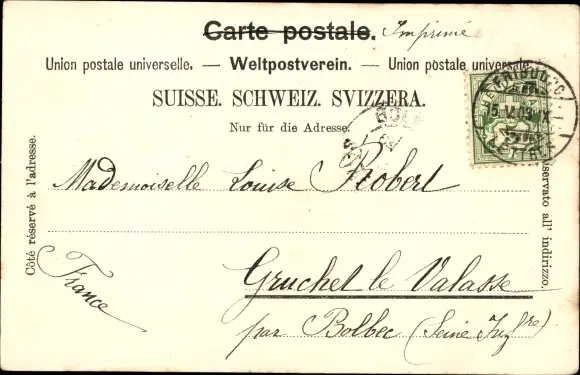 Carte postale. Imprimé
Union postale universelle. — Weltpostverein. — Union postale universale
SUISSE. SCHWEIZ. SVIZZERA.
Nur für die Adresse.
Côté réservé à l'adresse.
riservato all' indirizzo.
FRIBOURG
LETTRE
Mademoiselle Louise Robert
Gruchet le Valasse
par Bolbec (Seine Infre)
France